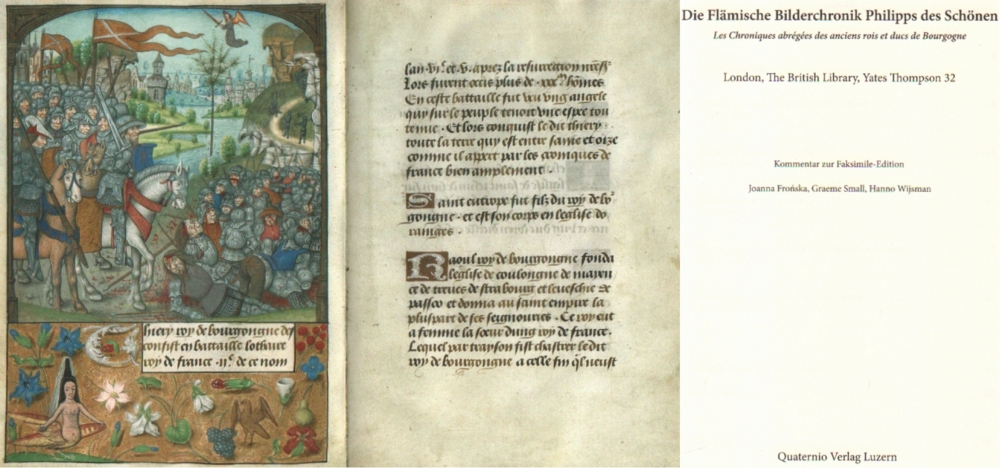 hiery roy de bourgongne des
confist en battaille lothaire
roy de france .ii.e de ce nom
lan .vi.c et .v. apres la resurrection nr̄e sr̄
Lors furent occis plus de .xxx.m hōmes
En ceste battaille fut veu vng angele
qui sur le peuple tenoit vne espee tou
te nue . Et lors conquist le dit thiery
toute la terre quy est entre sanie et oize
comme il appert par les croniques de
france bien amplement .
Saint eutrope fut filz du roy de bō
gongne . et est son corps en leglise do
ranges .
Raoul roy de bourgongne fonda
leglise de coulongne de maien
ce de treues de strabourg et leuesche de
passco et donna au saint empire la
pluspart de ses seignouries . Ce roy eut
a femme la soeur dung roy de france .
Lequel par trayson fist chastrer le dit
roy de bourgongne a celle fin q̄l neust
Die Flämische Bilderchronik Philipps des Schönen
Les Chroniques abrégées des anciens rois et ducs de Bourgogne
London, The British Library, Yates Thompson 32
Kommentar zur Faksimile-Edition
Joanna Frońska, Graeme Small, Hanno Wijsman
Quaternio Verlag Luzern